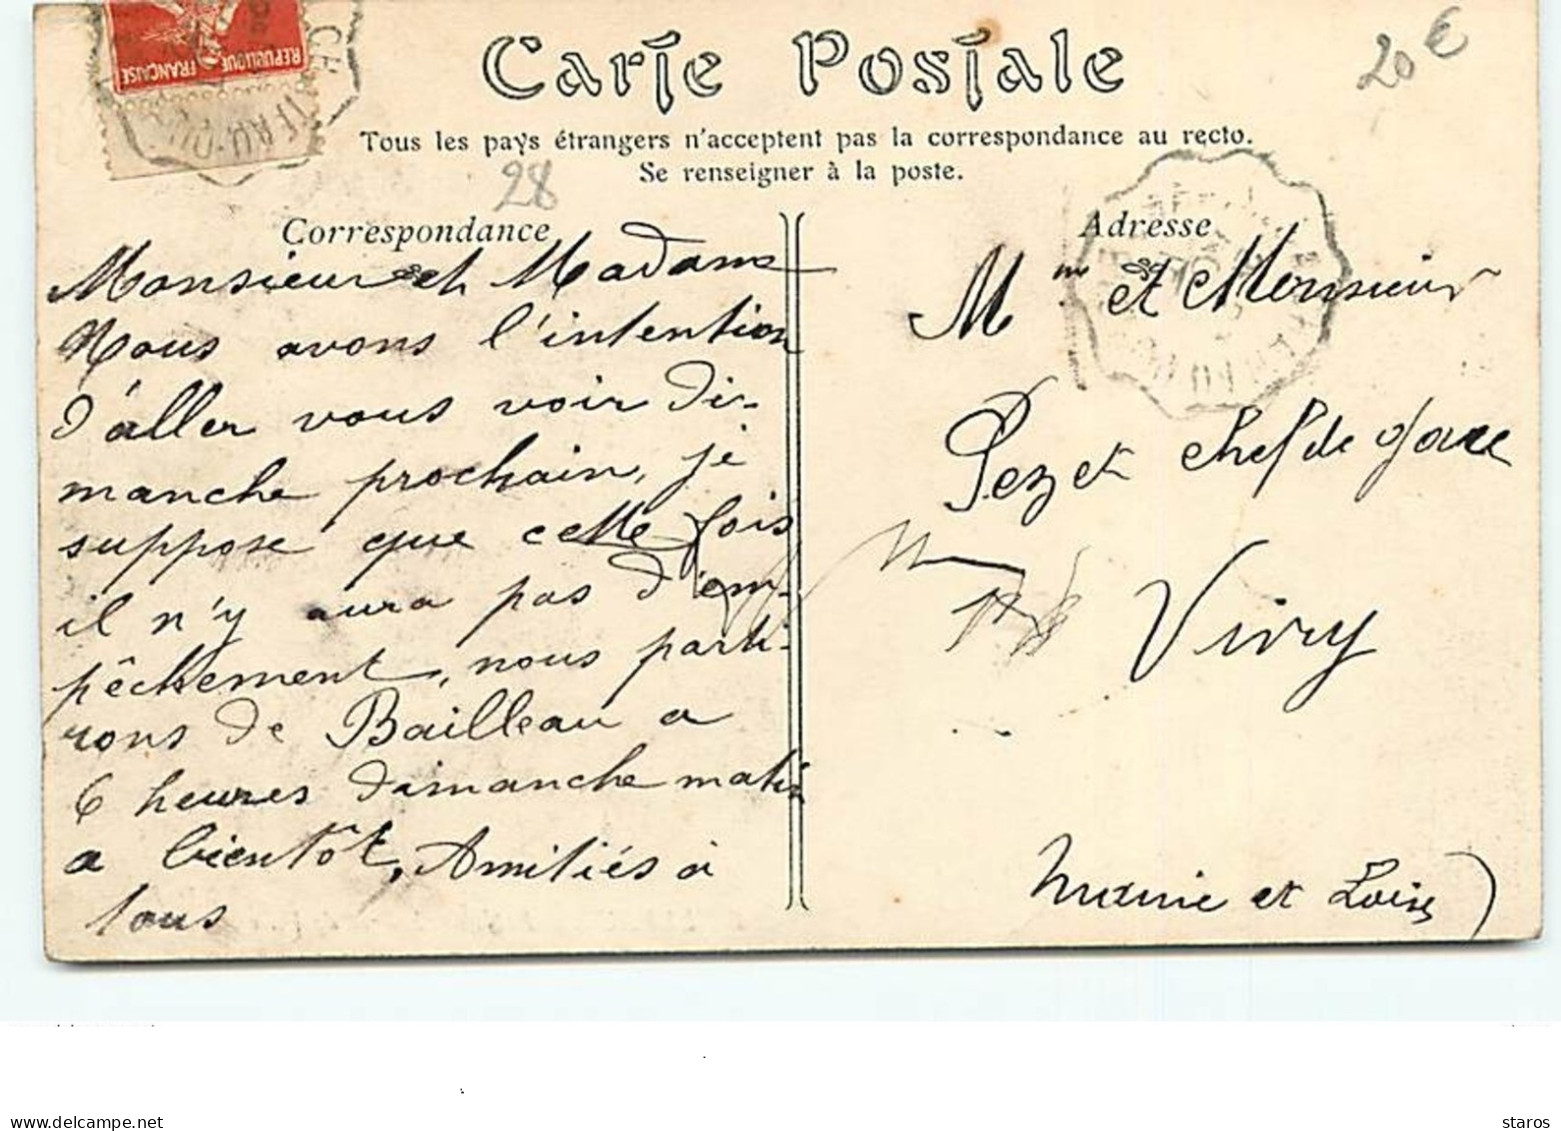 REPUBLIQUE FRANÇAISE
Carte Postale
20 €
Tous les pays étrangers n'acceptent pas la correspondance au recto.
Se renseigner à la poste.
28
Correspondance
Monsieur et Madame
Nous avons l'intention
d'aller vous voir di-
manche prochain, je
suppose que cette fois
il n'y aura pas d'em-
pêchement, nous parti-
rons de Bailleau a
6 heures dimanche matin
a bientôt, Amitiés à
tous
Adresse
Mme et Monsieur
Pezet chef de gare
Vivry
Maine et Loire)
delcampe.net
staros